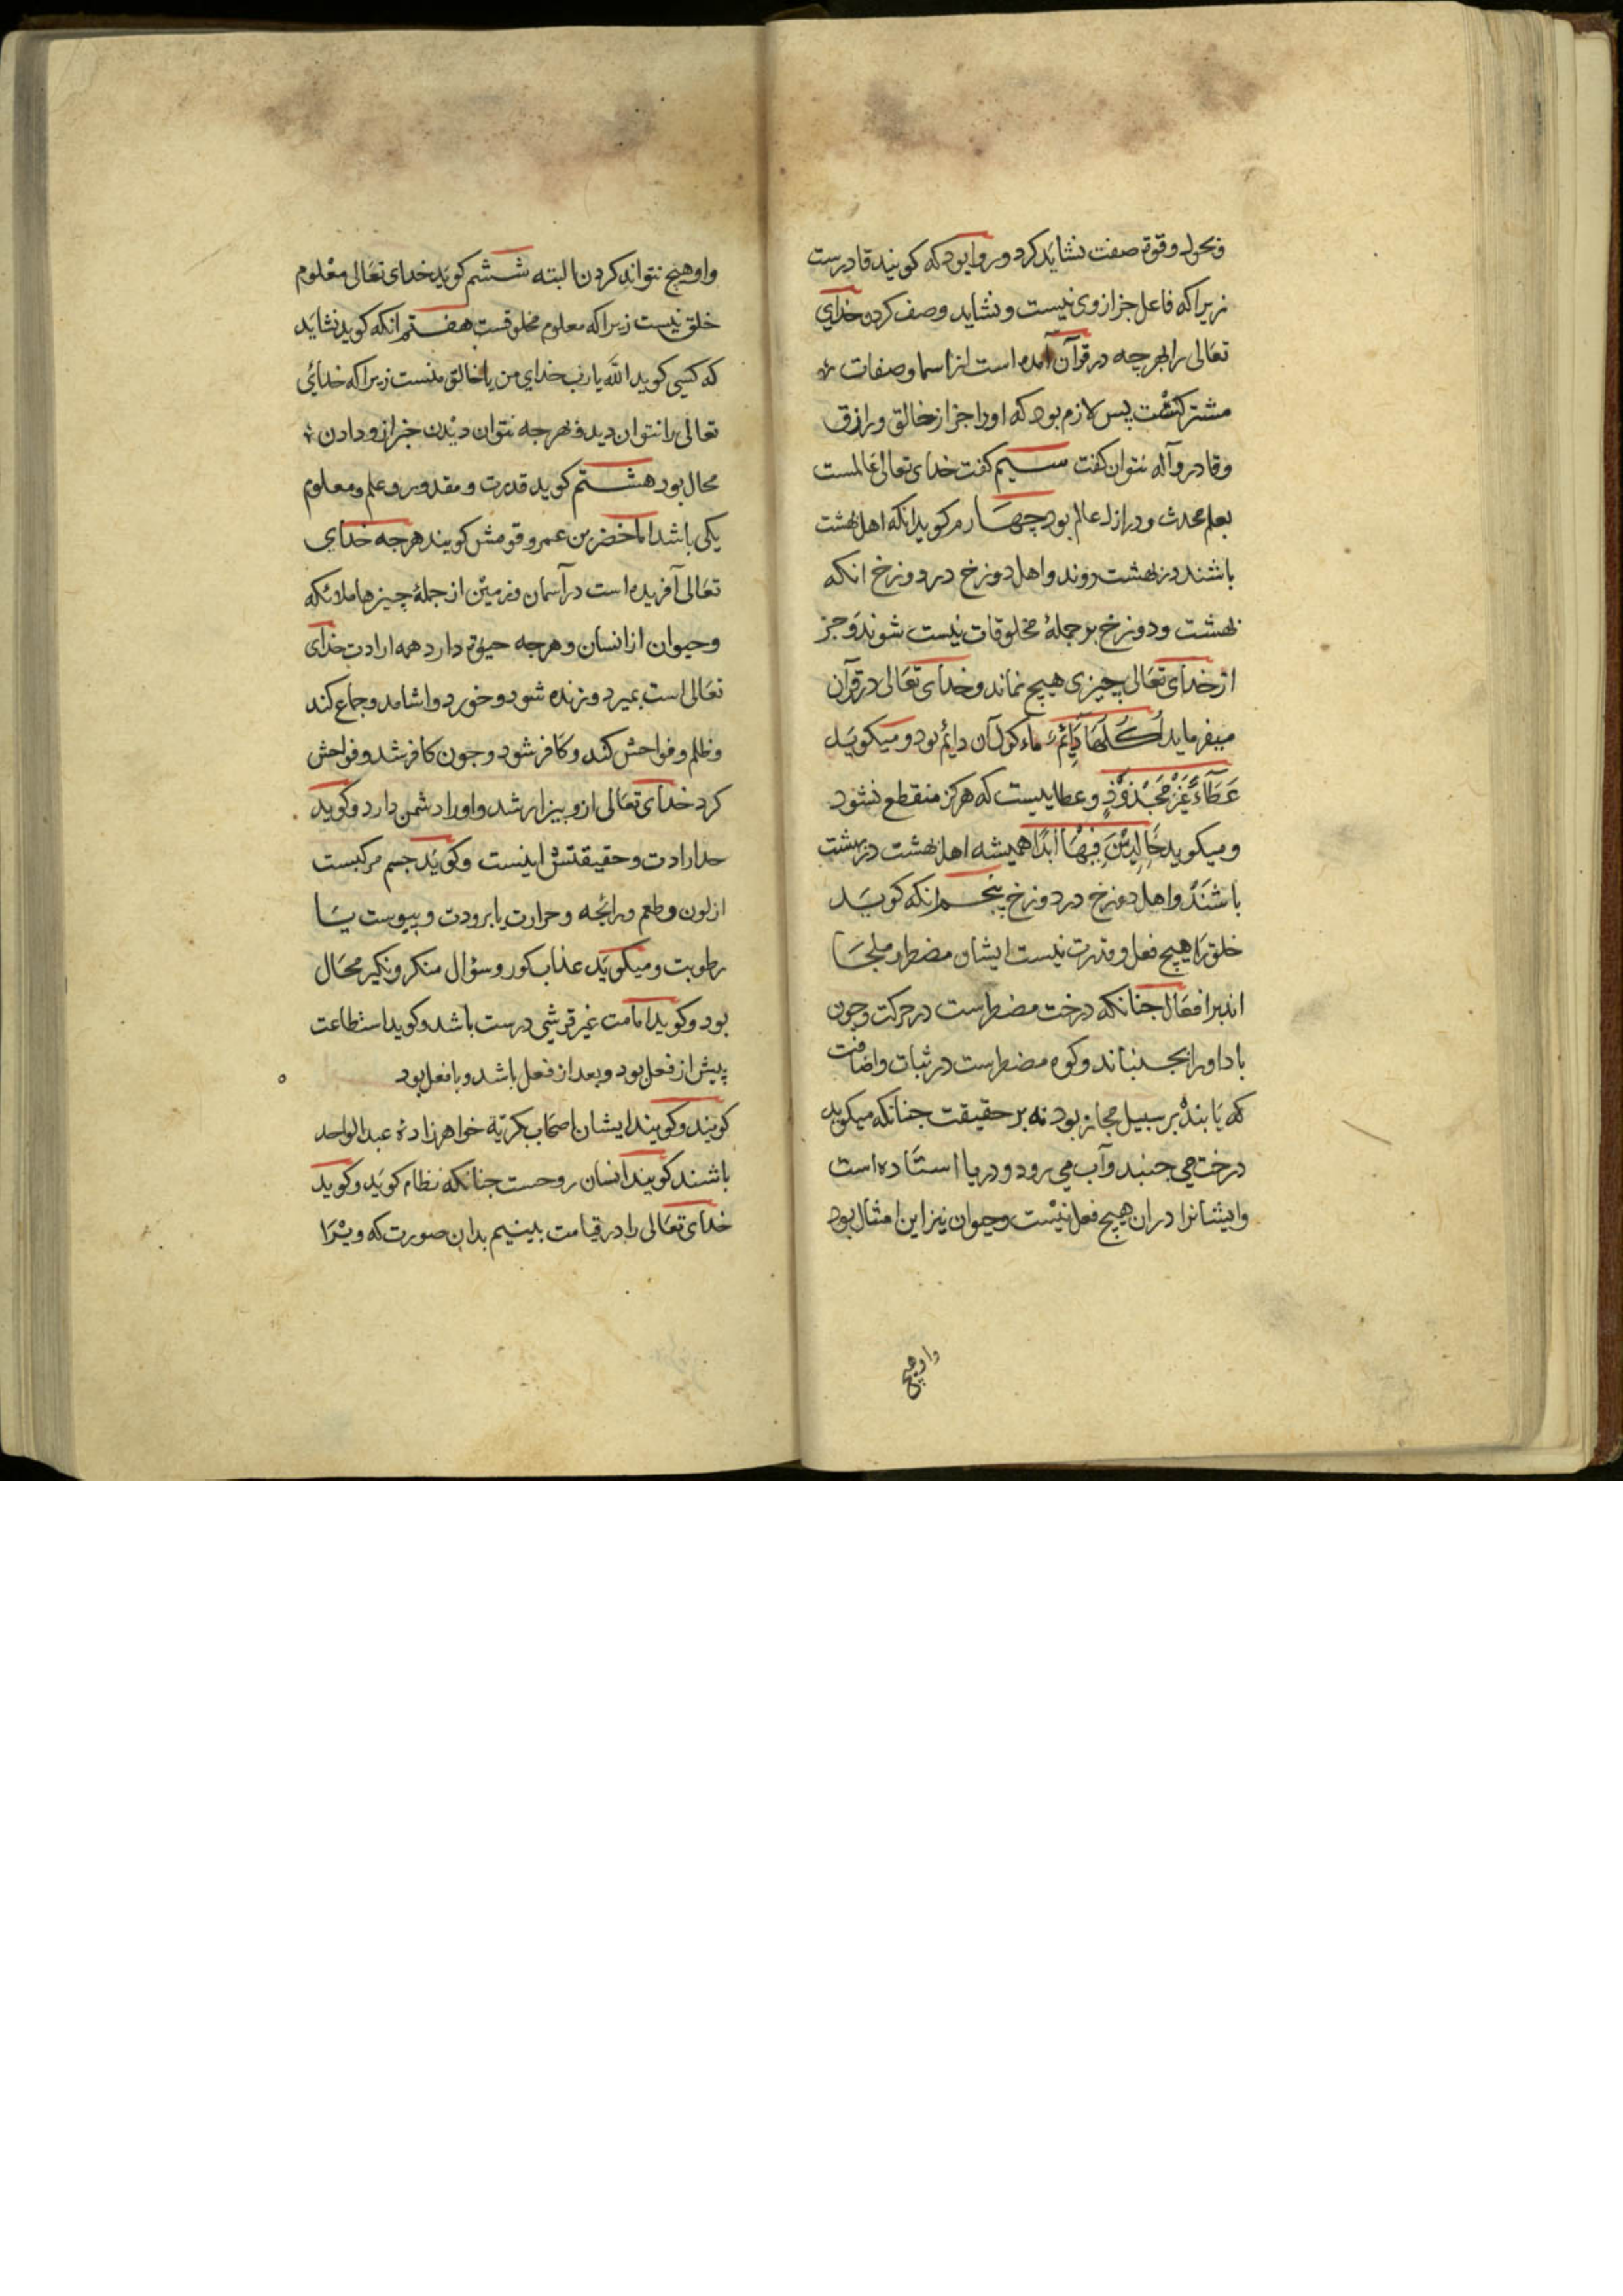 وبحول وقوة صفت نشاید کرد و روا بود که کویند قادرست
زیرا که فاعل جز از وی نیست و نشاید وصف کردن خدای
تعالی را بهر چه در قرآن آمده است از اسما و صفات
مشترکست پس لازم بود که او را جز از خالق و رازق
و قادر و آله نتوان کفت سیم کفت خدای تعالی عالمست
بعلم محدث و در ازل عالم بود چهارم کوید انکه اهل بهشت
باشند در بهشت روند و اهل دوزخ در دوزخ انکه
بهشت و دوزخ بر جملهٔ مخلوقات نیست شوند و جز
از خدای تعالی چیزی هیچ نماند و خدای تعالی در قرآن
میفرماید اُکُلُهَا دَائِمٌ ماء کول آن دائم بود و میکوید
عَطَآءً غَیْرَ مَجْذُوْذٍ و عطاییست که هرکز منقطع نشود
و میکوید خَالِدِیْنَ فِیْهَا اَبَدًا همیشه اهل بهشت در بهشت
باشند و اهل دوزخ در دوزخ پنجم انکه کوید
خلق را هیچ فعل و قدرت نیست ایشان مضطر و ملجا
اندبر افعال جنانکه درخت مضطرست در حرکت وجون
باد او را بجنباند و کوه مضطرست در ثبات و اضافت
که با بنده بر سبیل مجاز بود نه بر حقیقت جنانکه میکوید
درخت می جنبد و آب می رود و دریا استاده است
و ایشانرا دران هیچ فعل نیست وحیوان نیز این امثال بود
واو هیچ
واو هیچ نتواند کردن البته ششم کوید خدای تعالی معلوم
خلق نیست زیرا که معلوم مخلوقست هفتم انکه کوید نشاید
که کسی کوید الله یا رب خدای من یا خالق منست زیرا که خدای
تعالی را نتوان دید و هر جه نتوان دیدن خبر از و دادن
محال بود هشتم کوید قدرت و مقدور و علم و معلوم
یکی باشد اما خضر بن عمرو و قومش کویند هر جه خدای
تعالی آفریده است در آسمان و زمین از جملهٔ چیزها ملائکه
و حیوان از انسان و هر جه حیوة دارد همه ارادت خدای
تعالی است بمیرد و زنده شود و خورد و اشامد و جماع کند
و ظلم و فواحش کند و کافر شود و جون کافر شد و فواحش
کرد خدای تعالی ازو بیزار شد و او را دشمن دارد و کوید
حد ارادت و حقیقتش اینست و کوید جسم مرکبست
از لون و طعم و رائحه و حرارت یا برودت و یبوست یا
رطوبت و میکوید عذاب کور و سؤال منکر و نکیر محال
بود و کوید امامت غیر قرشی درست باشد و کوید استطاعت
پیش از فعل بود و بعد از فعل باشد و با فعل بود
کویند و کویند ایشان اصحاب بکریة خواهرزادهٔ عبدالواحد
باشند کویند انسان روحست جنانکه نظام کوید و کوید
خدای تعالی را در قیامت بینیم بدان صورت که ویرا